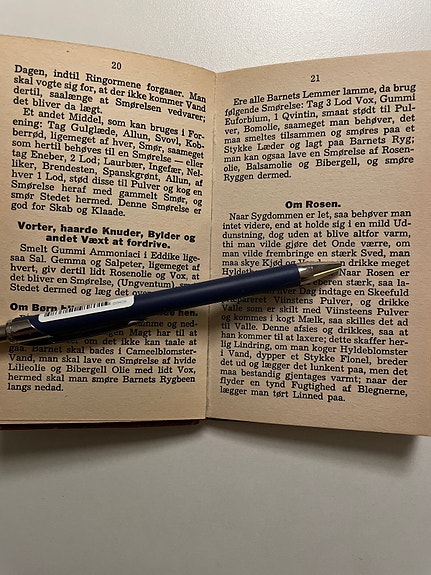 20
Dagen, indtil Ringormene forgaaer. Man
skal vogte sig for, at der ikke kommer Vand
dertil, saalænge at Smørelsen vedvarer;
det bliver da lægt.
Et andet Middel, som kan bruges i For-
ening: Tag Gulglæde, Allun, Svovl, Kob-
berrød, ligemeget af hver, lagt Smør, saameget
som hertil behøves til en Smørelse — eller
tag Eneber, 2 Lod; Laurbær, Ingefær, Nel-
liker, Brendesten, Spanskgrønt, Allun, af
hver 1 Lod, stød disse til Pulver og kog en
Smørelse heraf med gammelt Smør, og
smør Stedet hermed. Denne Smørelse er
god for Skab og Klaade.
Vorter, haarde Knuder, Bylder og
andet Væxt at fordrive.
Smelt Gummi Ammoniaci i Eddike lige-
saa Sal. Gemma og Salpeter, ligemeget af
hvert, giv dertil lidt Rosenolie og Vox, at
det bliver en Smørelse, (Ungventum)
Stedet dermed og læg det
Om Børn
Magt har til at
det ikke kan taale at
gaa. Barnet skal bades i Cameelblomster-
Vand, man skal lave en Smørelse af hvide
Lilieolie og Bibergell Olie med lidt Vox,
hermed skal man smøre Barnets Rygbeen
langs nedad.
21
Ere alle Barnets Lemmer lamme, da brug
følgende Smørelse: Tag 3 Lod Vox, Gummi
Euforbium, 1 Qvintin, smaat stødt til Pul-
ver, Bomolie, saameget man behøver, det
maa smeltes tilsammen og smøres paa et
Stykke Læder og lagt paa Barnets Ryg;
man kan ogsaa lave en Smørelse af Rosen-
olie, Balsamolie og Bibergell, og smøre
Ryggen dermed.
Om Rosen.
Naar Sygdommen er let, saa behøver man
intet videre, end at holde sig i en mild Ud-
dunstning, dog uden at blive altfor varm,
thi man vilde gjøre det Onde værre, om
man vilde frembringe en stærk Sved, man
maa skye Kjød og drikke meget
Naar Rosen er
eberen stærk, saa la-
hver Dag indtage en Skeefuld
præpareret Viinsteens Pulver, og drikke
Valle som er skilt med Viinsteens Pulver
og kommen i kogt Melk, saa skilles det ad
til Valle. Denne afsies og drikkes, saa at
han kommer til at laxere; dette skaffer her-
lig Lindring, om man koger Hyldeblomster
i Vand, dypper et Stykke Flonel, breder
det ud og lægger det lunkent paa, men det
maa bestandig gjentages varmt; naar der
flyder en tynd Fugtighed af Blegnerne,
lægger man tørt Linned paa.